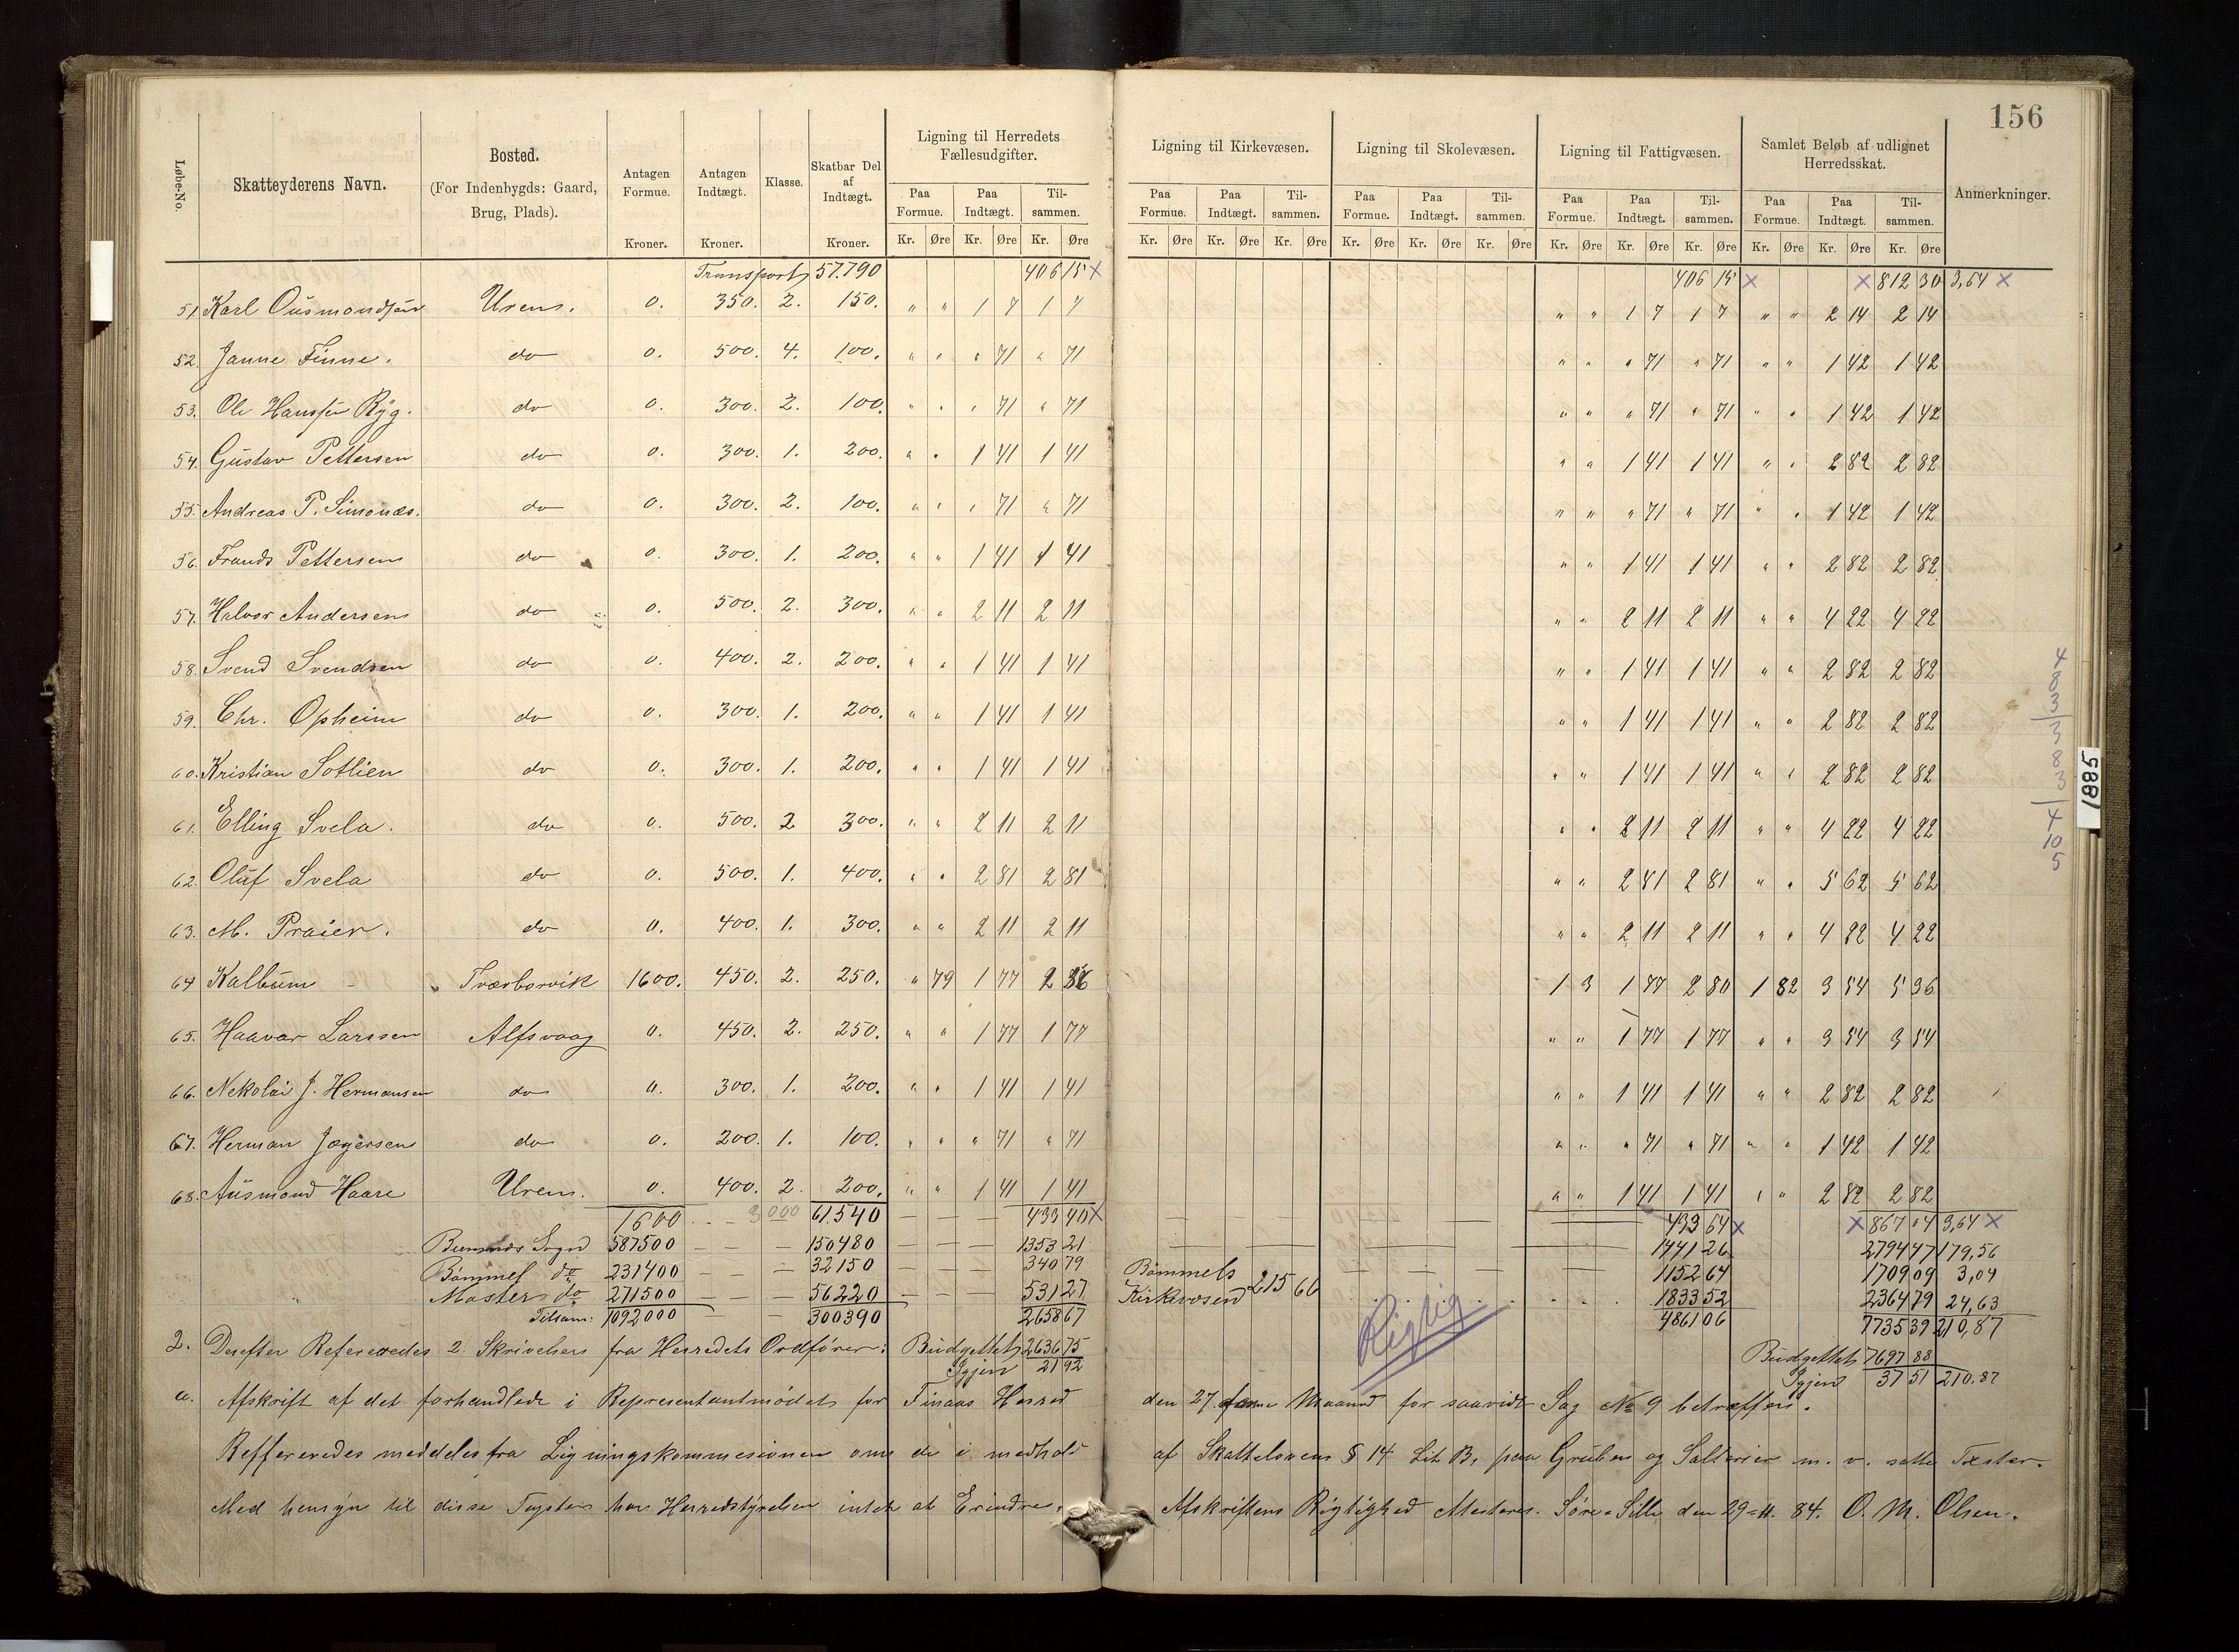 156
Løbe-No. Skatteyderens Navn. Bosted. (For Indenbygds: Gaard, Brug, Plads). Antagen Formue. Kroner. Antagen Indtægt. Kroner. Klasse. Skatbar Del af Indtægt. Kroner. Ligning til Herredets Fællesudgifter. Ligning til Kirkevæsen. Ligning til Skolevæsen. Ligning til Fattigvæsen. Samlet Beløb af udlignet Herredsskat. Anmerkninger.
Paa Formue. Paa Indtægt. Til-sammen. Paa Formue. Paa Indtægt. Til-sammen. Paa Formue. Paa Indtægt. Til-sammen. Paa Formue. Paa Indtægt. Til-sammen. Paa Formue. Paa Indtægt. Til-sammen.
Kr. Øre Kr. Øre Kr. Øre Kr. Øre Kr. Øre Kr. Øre Kr. Øre Kr. Øre Kr. Øre Kr. Øre Kr. Øre Kr. Øre Kr. Øre Kr. Øre Kr. Øre
Transport 57.790 406 15 x 406 15 x x 812 30 3,64 x
51 Karl Ousmondsen Uren. 0. 350. 2. 150. " " 1 7 1 7 " " 1 7 1 7 " " 2 14 2 14
52. Janne Finne. do 0. 500. 4. 100. " " " 71 " 71 " " " 71 " 71 " " 1 42 1 42
53. Ole Hanssen Ryg. do 0. 300. 2. 100. " " " 71 " 71 " " " 71 " 71 " " 1 42 1 42
54. Gustav Pettersen do 0. 300. 1. 200. " " 1 41 1 41 " " 1 41 1 41 " " 2 82 2 82
55. Andreas P. Simonæs. do 0. 300. 2. 100. " " " 71 " 71 " " " 71 " 71 " " 1 42 1 42
56. Frands Pettersen do 0. 300. 1. 200. " " 1 41 1 41 " " 1 41 1 41 " " 2 82 2 82
57. Halvor Andersen do 0. 500. 2. 300. " " 2 11 2 11 " " 2 11 2 11 " " 4 22 4 22
58. Svend Svendsen do 0. 400. 2. 200. " " 1 41 1 41 " " 1 41 1 41 " " 2 82 2 82
59. Chr. Opheim do 0. 300. 1. 200. " " 1 41 1 41 " " 1 41 1 41 " " 2 82 2 82
60. Kristian Sotlien do 0. 300. 1. 200. " " 1 41 1 41 " " 1 41 1 41 " " 2 82 2 82
61. Elling Svela. do 0. 500. 2 300. " " 2 11 2 11 " " 2 11 2 11 " " 4 22 4 22
62. Oluf Svela do 0. 500. 1. 400. " " 2 81 2 81 " " 2 81 2 81 " " 5 62 5 62
63. M. Praier. do 0. 400. 1. 300. " " 2 11 2 11 " " 2 11 2 11 " " 4 22 4 22
64 Kalbum Tværborvik 1600. 450. 2. 250. " 79 1 77 2 56 1 3 1 77 2 80 1 82 3 54 5 36
65. Haavar Larssen Alfsvaag 0. 450. 2. 250. " " 1 77 1 77 " " 1 77 1 77 " " 3 54 3 54
66. Nekolai J. Hermansen do 0. 300. 1. 200. " " 1 41 1 41 " " 1 41 1 41 " " 2 82 2 82
67. Herman Jægersen do 0. 200. 1. 100. " " " 71 " 71 " " " 71 " 71 " " 1 42 1 42
68. Ausmond Haare Uren. 0. 400. 2. 200. " " 1 41 1 41 " " 1 41 1 41 " " 2 82 2 82
1600 61.540 433 40 x 433 64 x x 867 04 3,64 x
Sogn 587500 150480 1353 21 1441 26 2794 47 179,56
Bømmel do 231400 32150 340 79 Bømmels 1152 64 1709 09 3,04
Moster do 271500 56220 531 27 Kirkevæsen 215 66 1833 52 2364 79 24,63
Tilsam: 1092000 300390 2658 67 4861 06 7735 39 210,87
Rigtig
2. Derefter Refereredes 2 Skrivelser fra Herredets Ordfører: Budgettet 2636 75 Budgettet 7697 88
Igjen 21 92 Igjen 37 51 210.87
a. Afskrift af det forhandlede i Representantmødet for Finaas Herred den 27 Maaned for saavidt Sag No 9 betræffer.
Reffereredes meddeles fra Ligningskommesionen om de i medhold af Skattelovens § 14 Lit B, paa Gruben og Salterier m. v. satte Taxter.
Med hensyn til disse Taxter har Herredstyrelsen intet at Erindre. Afskriftens Rigtighed Attesteres. Søre-Sille den 29-11. 84. O. M. Olsen.
4
8
3
3
8
3
4
10
5
1885